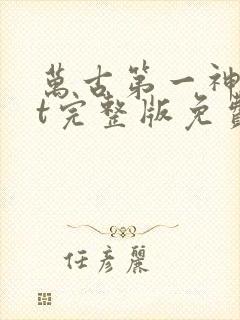 萬古第一神
t完整版免費
任彥麗